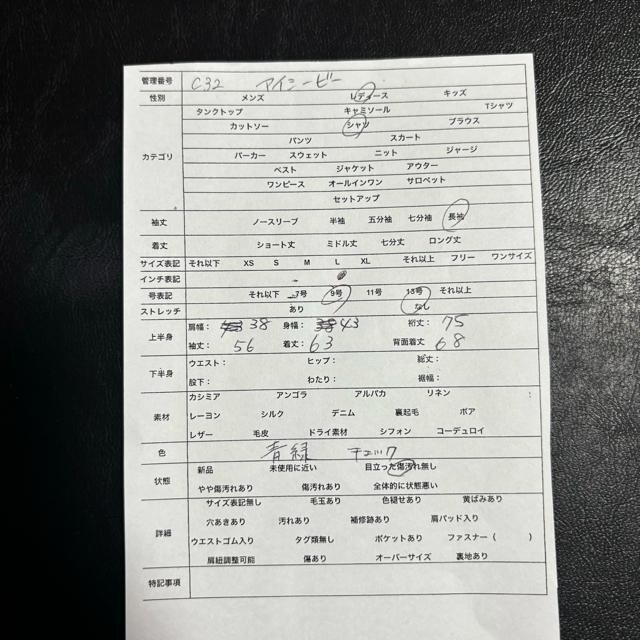 管理番号 C32 アイシービー
性別 メンズ レディース キッズ
タンクトップ キャミソール Tシャツ
カットソー シャツ ブラウス
パンツ スカート
カテゴリ パーカー スウェット ニット ジャージ
ベスト ジャケット アウター
ワンピース オールインワン サロペット
セットアップ
袖丈 ノースリーブ 半袖 五分袖 七分袖 長袖
着丈 ショート丈 ミドル丈 七分丈 ロング丈
サイズ表記 それ以下 XS S M L XL それ以上 フリー ワンサイズ
インチ表記
号表記 それ以下 7号 9号 11号 13号 それ以上
ストレッチ あり なし
上半身 肩幅： 38 身幅： 43 裄丈： 75
袖丈： 56 着丈： 63 背面着丈 68
下半身 ウエスト： ヒップ： 総丈：
股下： わたり： 裾幅：
カシミア アンゴラ アルパカ リネン ：
素材 レーヨン シルク デニム 裏起毛 ボア
レザー 毛皮 ドライ素材 シフォン コーデュロイ
色 青緑 チェック
状態 新品 未使用に近い 目立った傷汚れ無し
やや傷汚れあり 傷汚れあり 全体的に状態悪い
サイズ表記無し 毛玉あり 色褪せあり 黄ばみあり
詳細 穴あきあり 汚れあり 補修跡あり 肩パッド入り
ウエストゴム入り タグ類無し ポケットあり ファスナー（ ）
肩紐調整可能 傷あり オーバーサイズ 裏地あり
特記事項